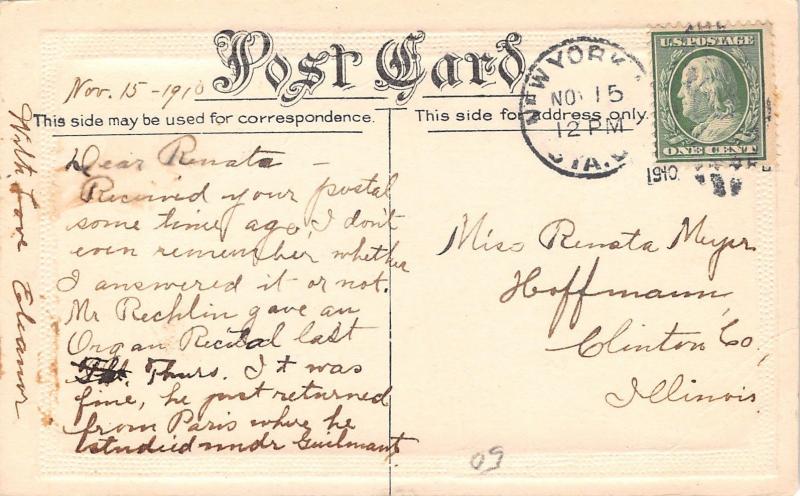 Post Card
Nov. 15 - 1910
This side may be used for correspondence.
This side for address only.
Dear Renata -
Received your postal
some time ago, I don't
even remember whether
I answered it or not.
Mr Rechlin gave an
Organ Recital last
Thurs. It was
fine, he just returned
from Paris where he
studied undr Guilmant
With Love Eleanor
NEW YORK
NOV 15
12 PM
STA.
1910
U.S. POSTAGE
ONE CENT
Miss Renata Meyer
Hoffmann,
Clinton Co,
Illinois.
50